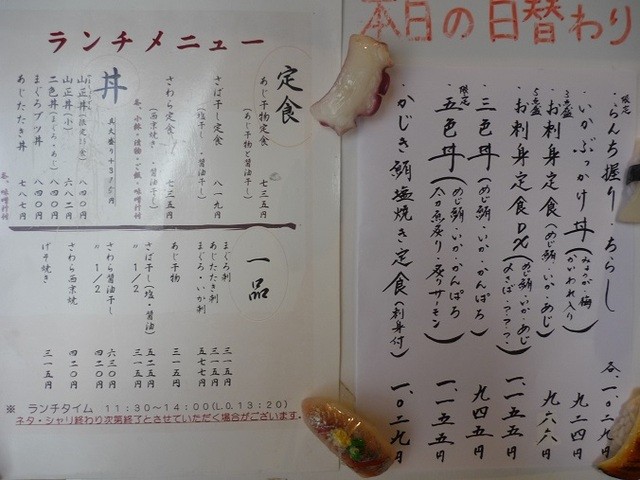 ランチメニュー
定食
あじ干物定食 七三五円
(あじ干物と醤油干し)
さば干し定食 八一九円
(塩干し・醤油干し)
さわら定食 七三五円
(西京焼き・醤油干し)
丼
山正丼(限定11食) 八四〇円
山正丼(小) 六八二円
二色丼(まぐろ・あじ) 八四〇円
まぐろブツ丼 八四〇円
あじたたき丼 七八七円
一品
まぐろ刺 三一五円
あじたたき刺 五七七円
まぐろ・いか刺
あじ干物 三一五円
さば干し(塩・醤油) 五二五円
〃 1/2 三一五円
さわら醤油干し 六三〇円
〃 1/2 四二〇円
さわら西京焼 四二〇円
げそ焼き 三一五円
※ ランチタイム 11:30~14:00(L.O.13:20)
ネタ・シャリ終わり次第終了とさせていただく場合がございます。
本日の日替わり
限定
・らんち握り・ちらし 各一、〇二九円
・いかぶっかけ丼(みょうが・梅 かいわれ入り) 九二四円
3点盛
・お刺身定食(めじ鮪・いか・あじ) 九六六円
5点盛
・お刺身定食DX(めじ鮪・いか・あじ 〆さば・？・？・？) 一、一五五円
・三色丼(めじ鮪・いか・かんぱち) 九四五円
限定
・五色丼(めじ鮪・いか・かんぱち 金目炙り・炙りサーモン) 一、一五五円
・かじき鮪塩焼き定食(刺身付) 一、〇二九円